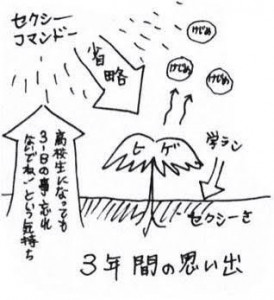 セクシー
コマンドー
省略
けじめ
けじめ
けじめ
ヒゲ
学ラン
セクシーさ
高校生になっても
3-1日の事忘れ
ないでね!という気持ち
3年間の思い出